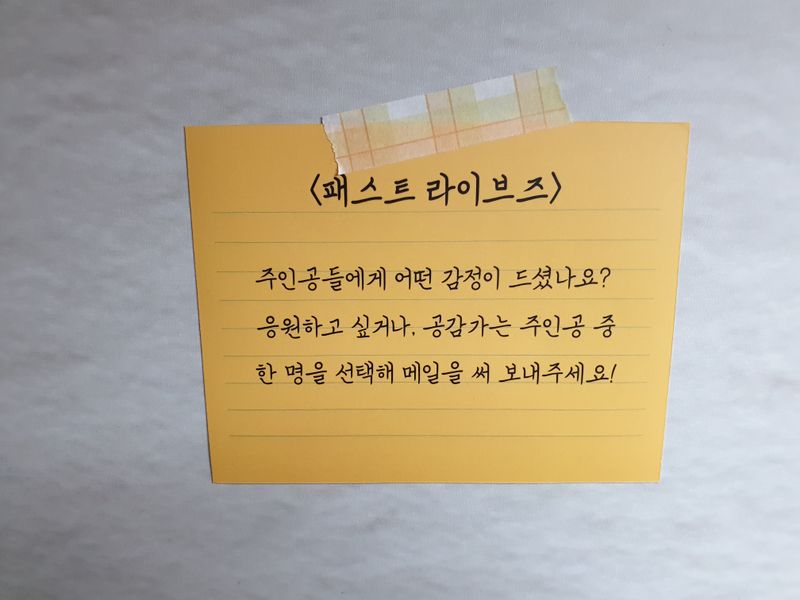 〈패스트 라이브즈〉
주인공들에게 어떤 감정이 드셨나요?
응원하고 싶거나, 공감가는 주인공 중
한 명을 선택해 메일을 써 보내주세요!